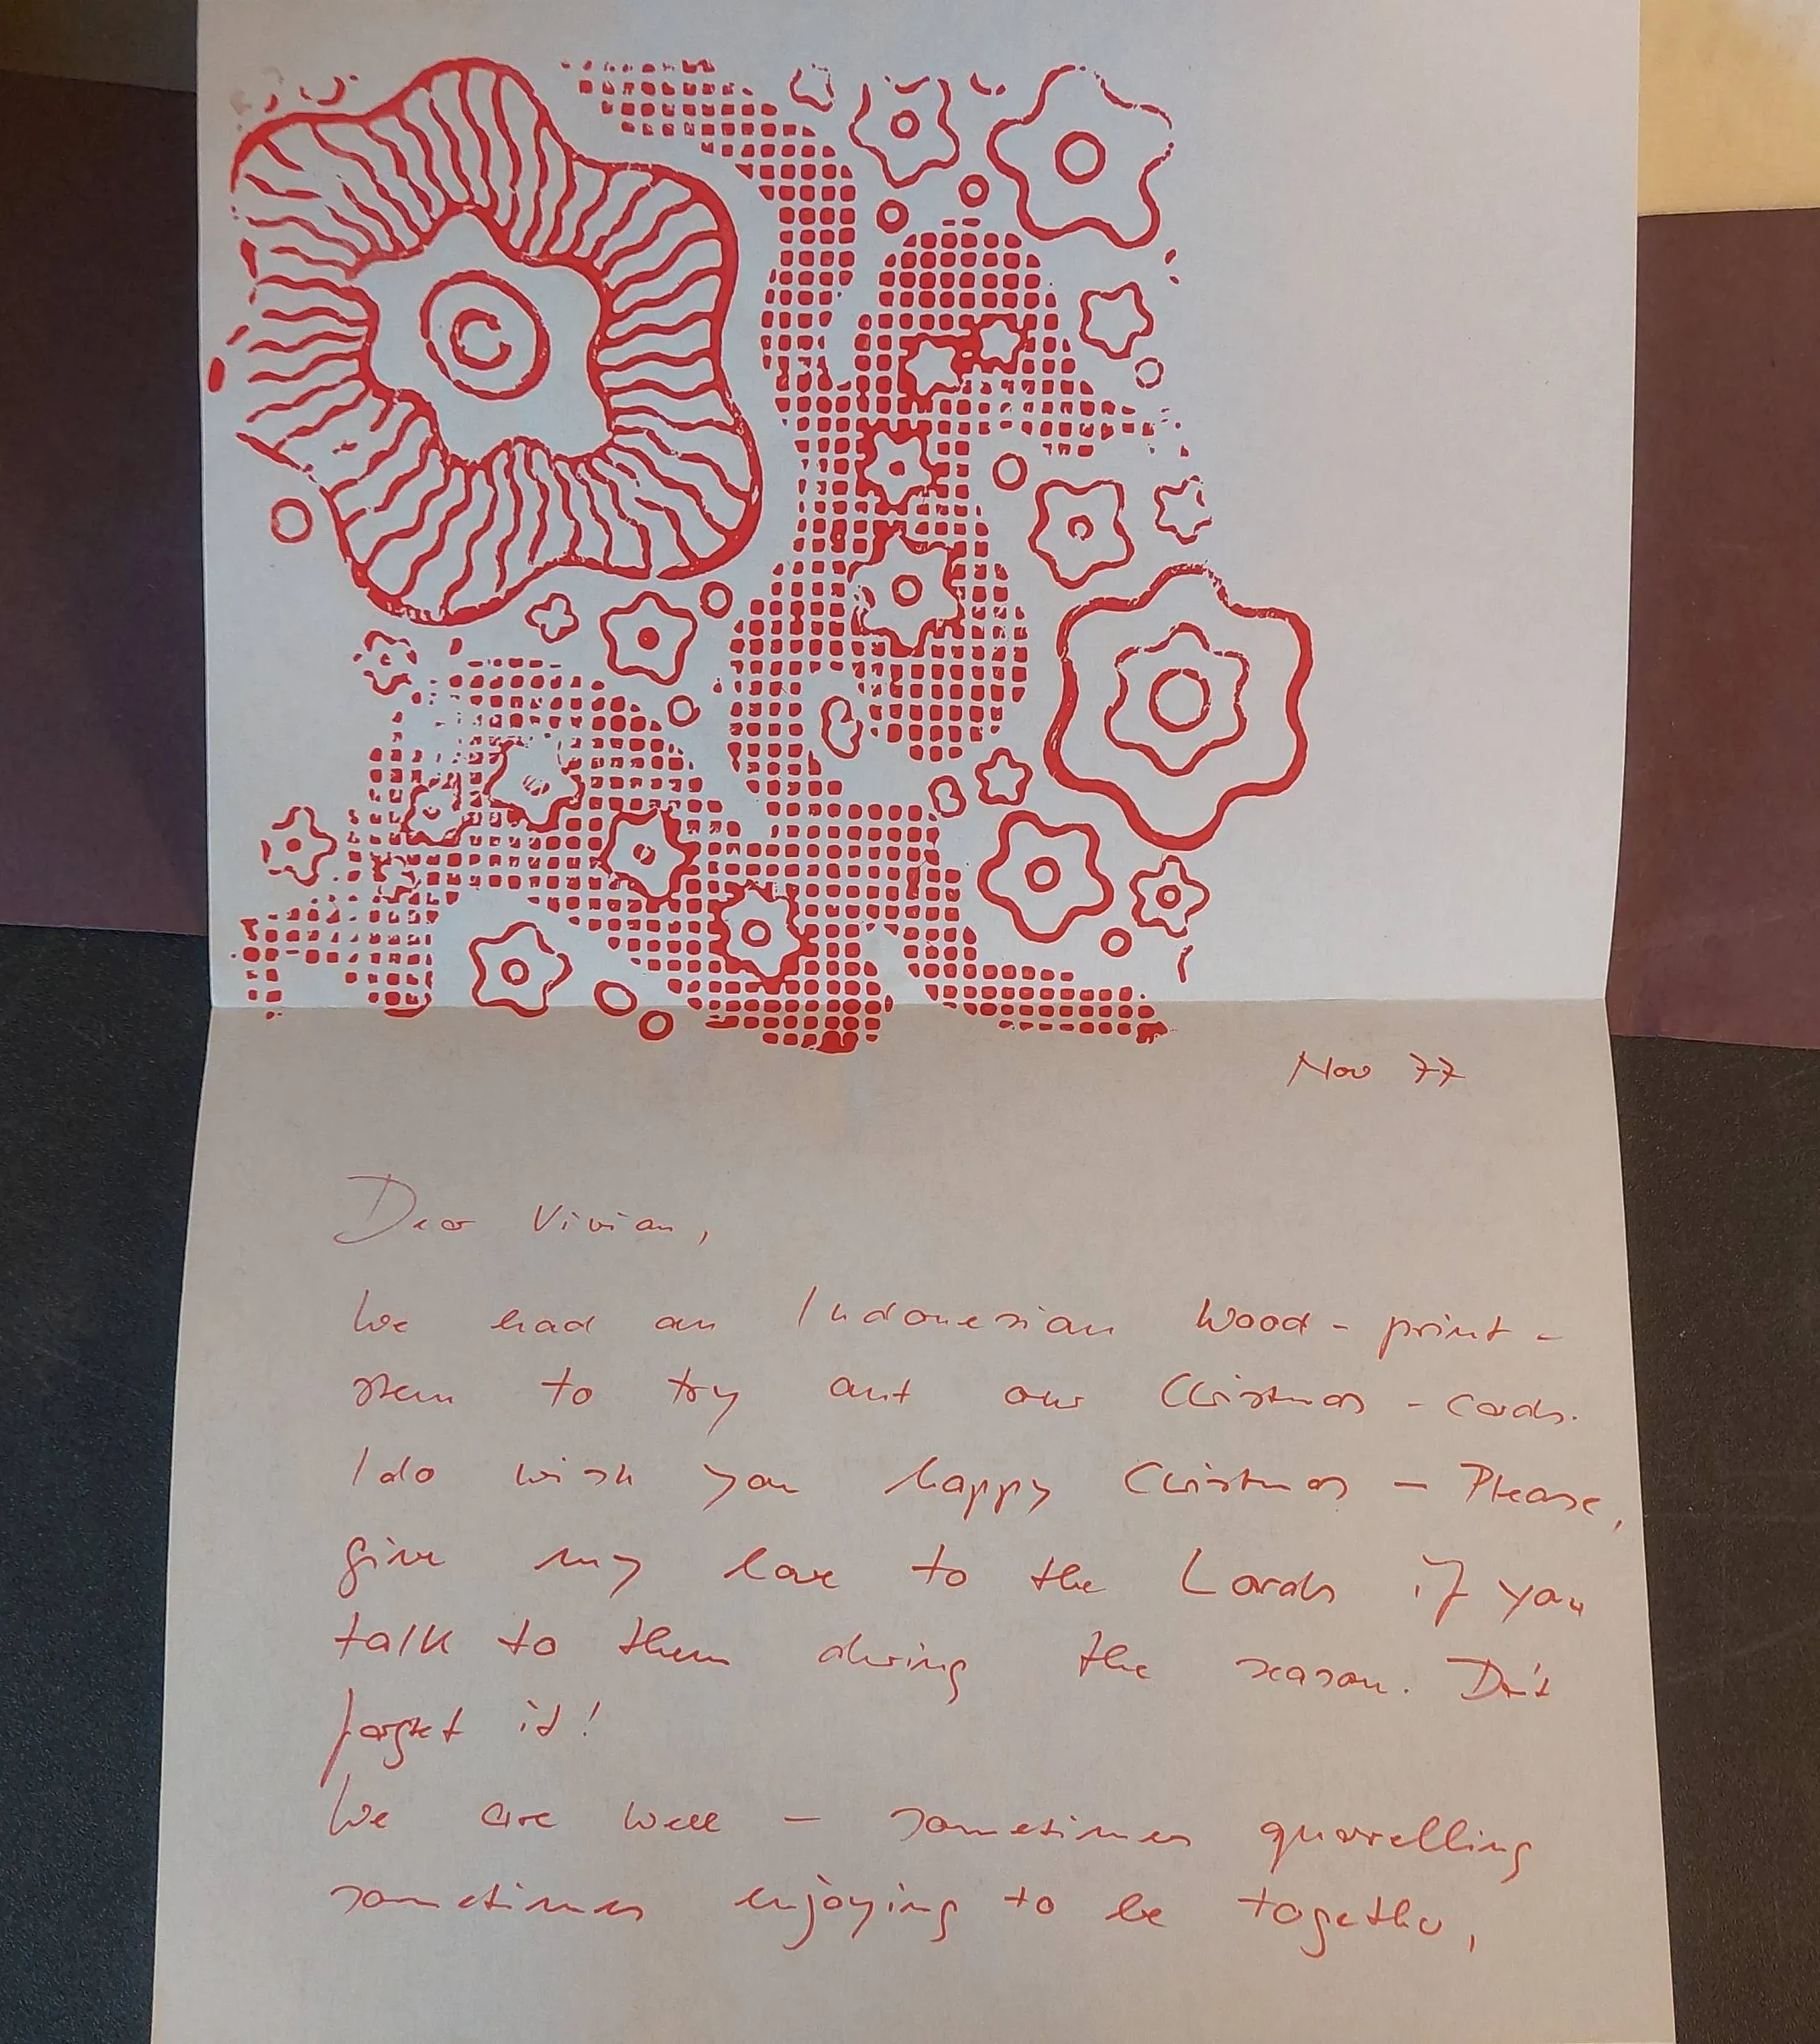 Nov 77
Dear Vivian,
We had an Indonesian Wood-print-
stem to try out our Christmas-cards.
I do wish you happy Christmas – Please,
give my love to the Lords if you
talk to them during the season. Don't
forget it!
We are well – sometimes quarrelling
sometimes enjoying to be together,